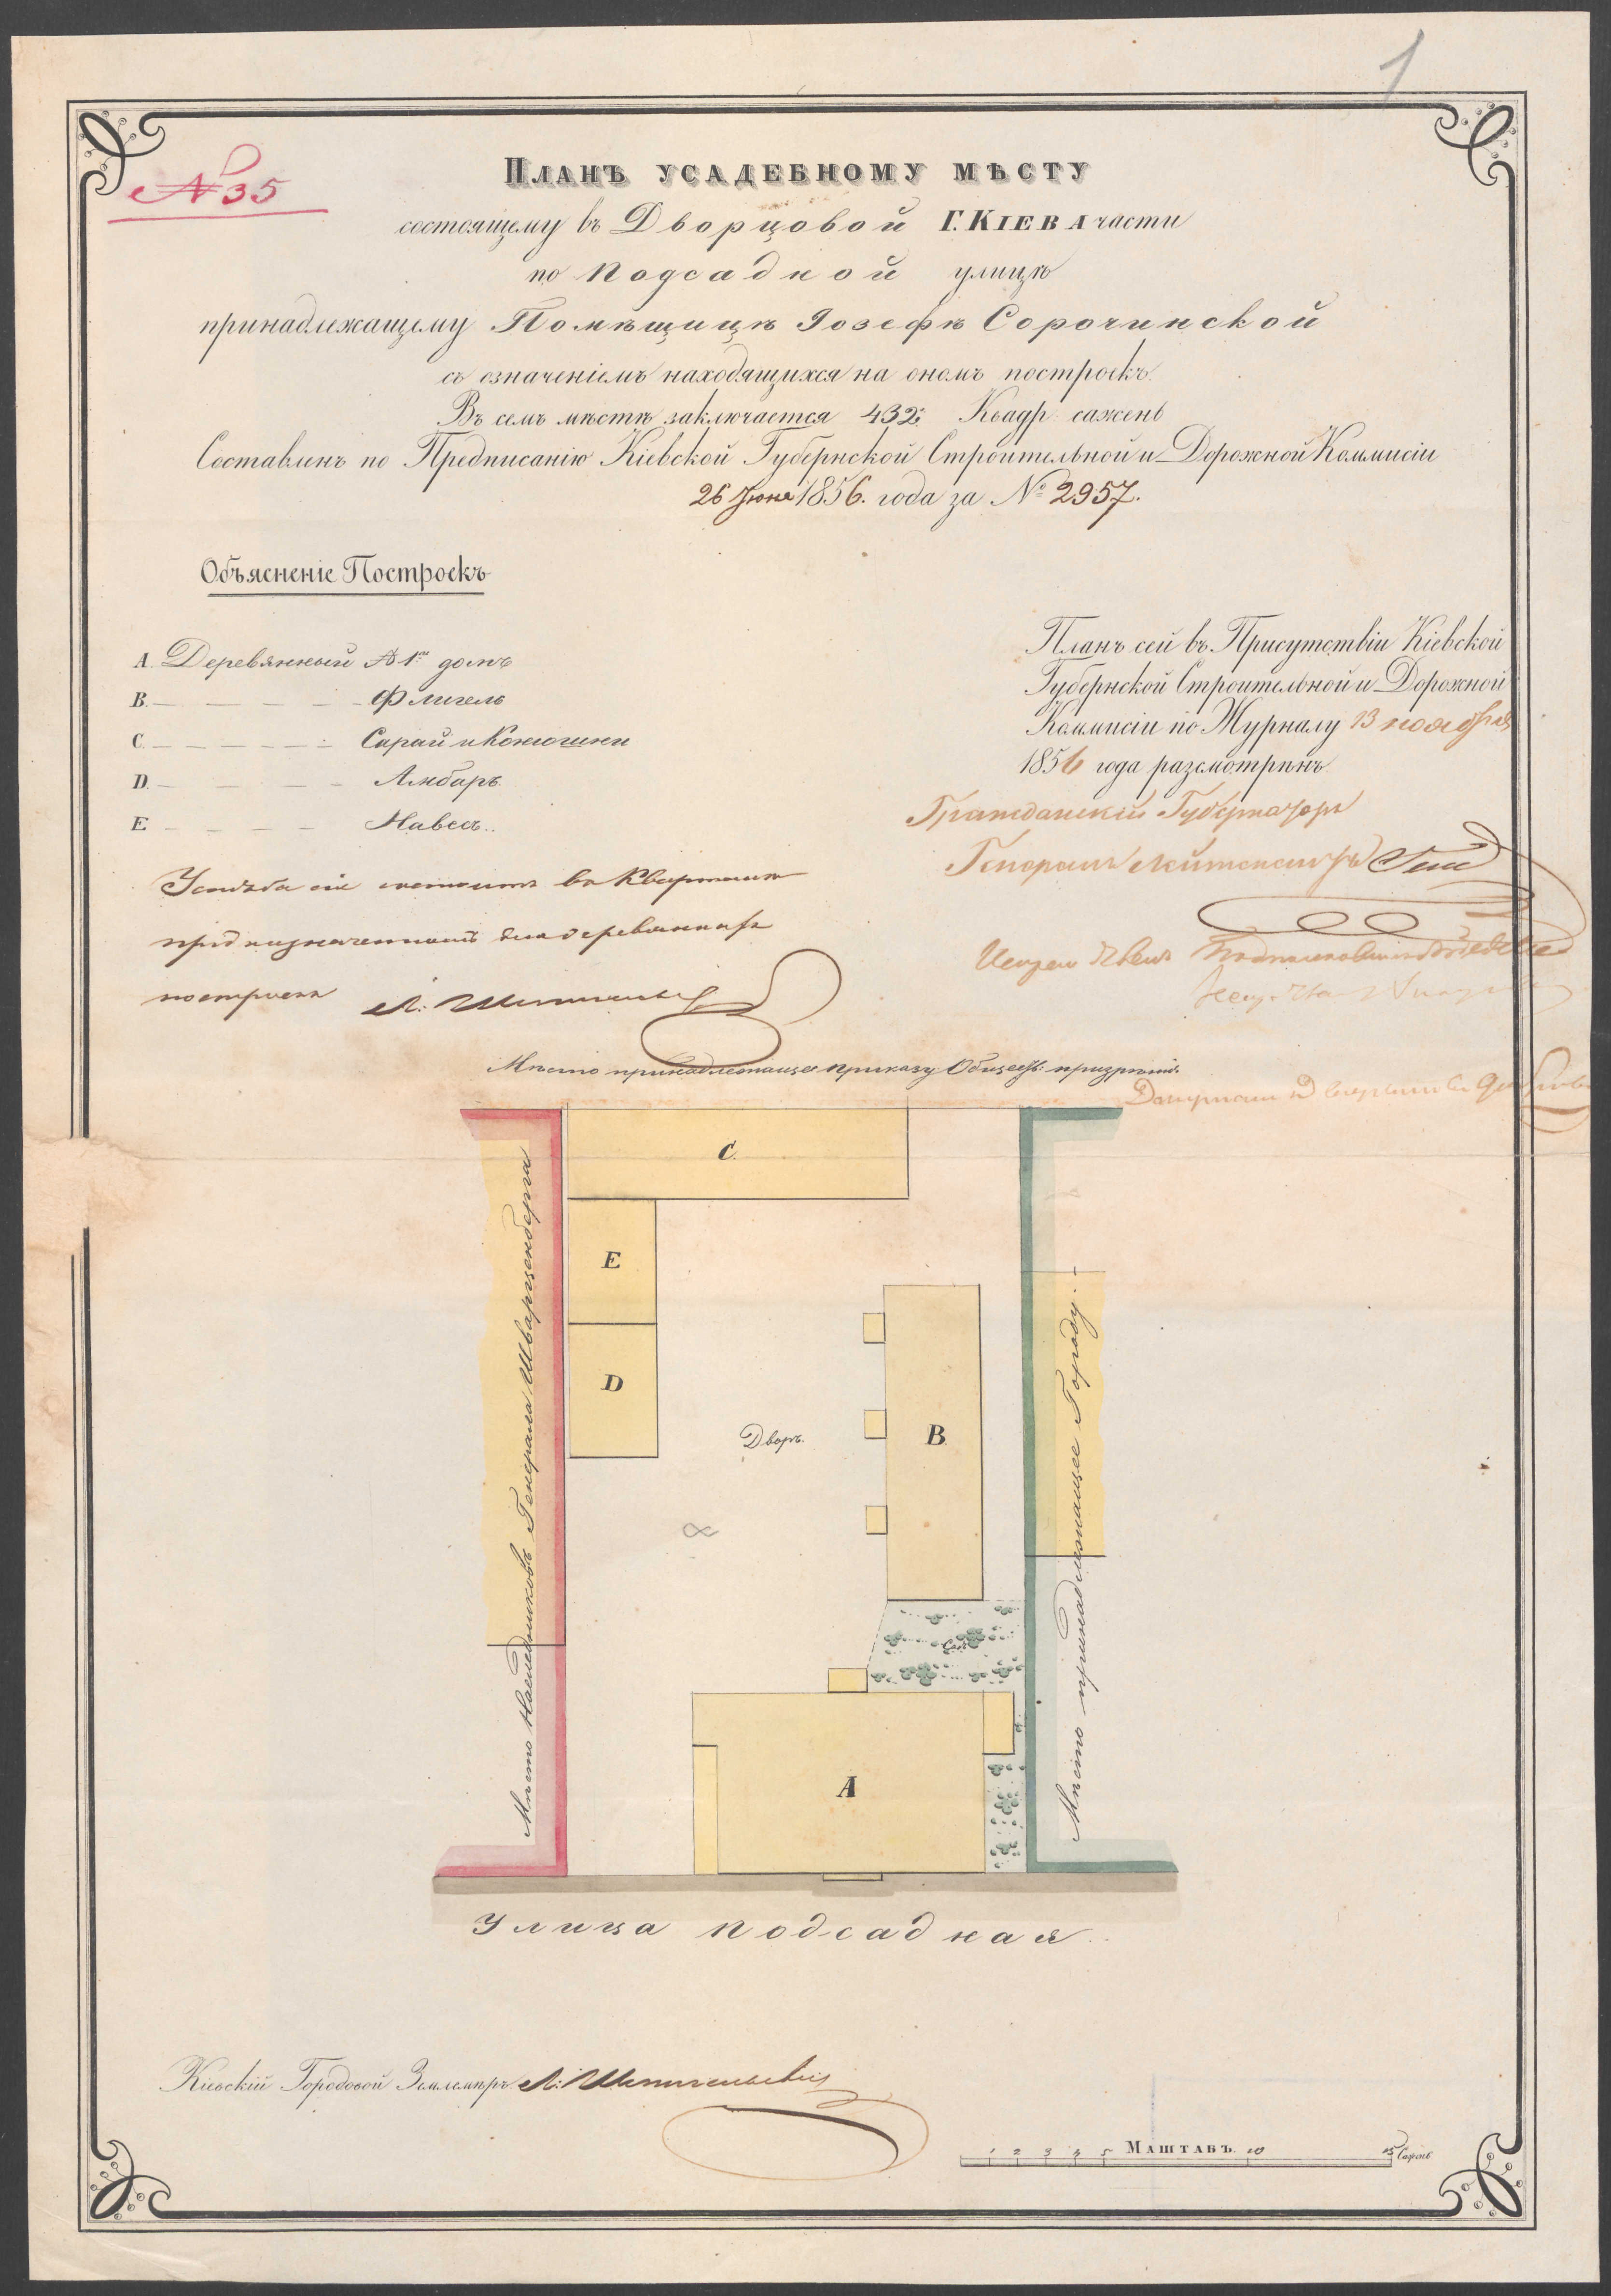 1
№ 35
Планъ усадебному мѣсту
состоящему въ Дворцовой Г. Кіева части
по Подсадной улицѣ
принадлежащему Помѣщицѣ Іозефѣ Сорочинской
съ означеніемъ находящихся на ономъ построекъ.
Въ семъ мѣстѣ заключается 432 Квадр. сажень
Составленъ по Предписанію Кіевской Губернской Строительной и Дорожной Коммисіи
26 Іюня 1856. года за № 2957.
Объясненіе Построекъ
A. Деревянный домъ
B. Флигель
C. Сарай и Конюшни
D. Амбаръ.
E Навесъ..
Планъ сей въ Присутствіи Кіевской
Губернской Строительной и Дорожной
Коммисіи по Журналу 13 ноября
1856 года разсмотрѣнъ.
Гражданскій Губернаторъ
Генералъ Лейтенантъ
Усадьба сія состоитъ въ Кварталѣ
предназначенномъ для деревянныхъ
построекъ
Мѣсто принадлежащее приказу Общест: призрѣнія.
C.
E
D
B.
A
Дворъ.
Садъ
Мѣсто Наследниковъ Генерала Шварценберга
Мѣсто принадлежащее Городу.
Улица Подсадная.
Кіевскій Городовой Землемѣръ
1 2 3 4 5 Маштабъ. 10 15 Сажень